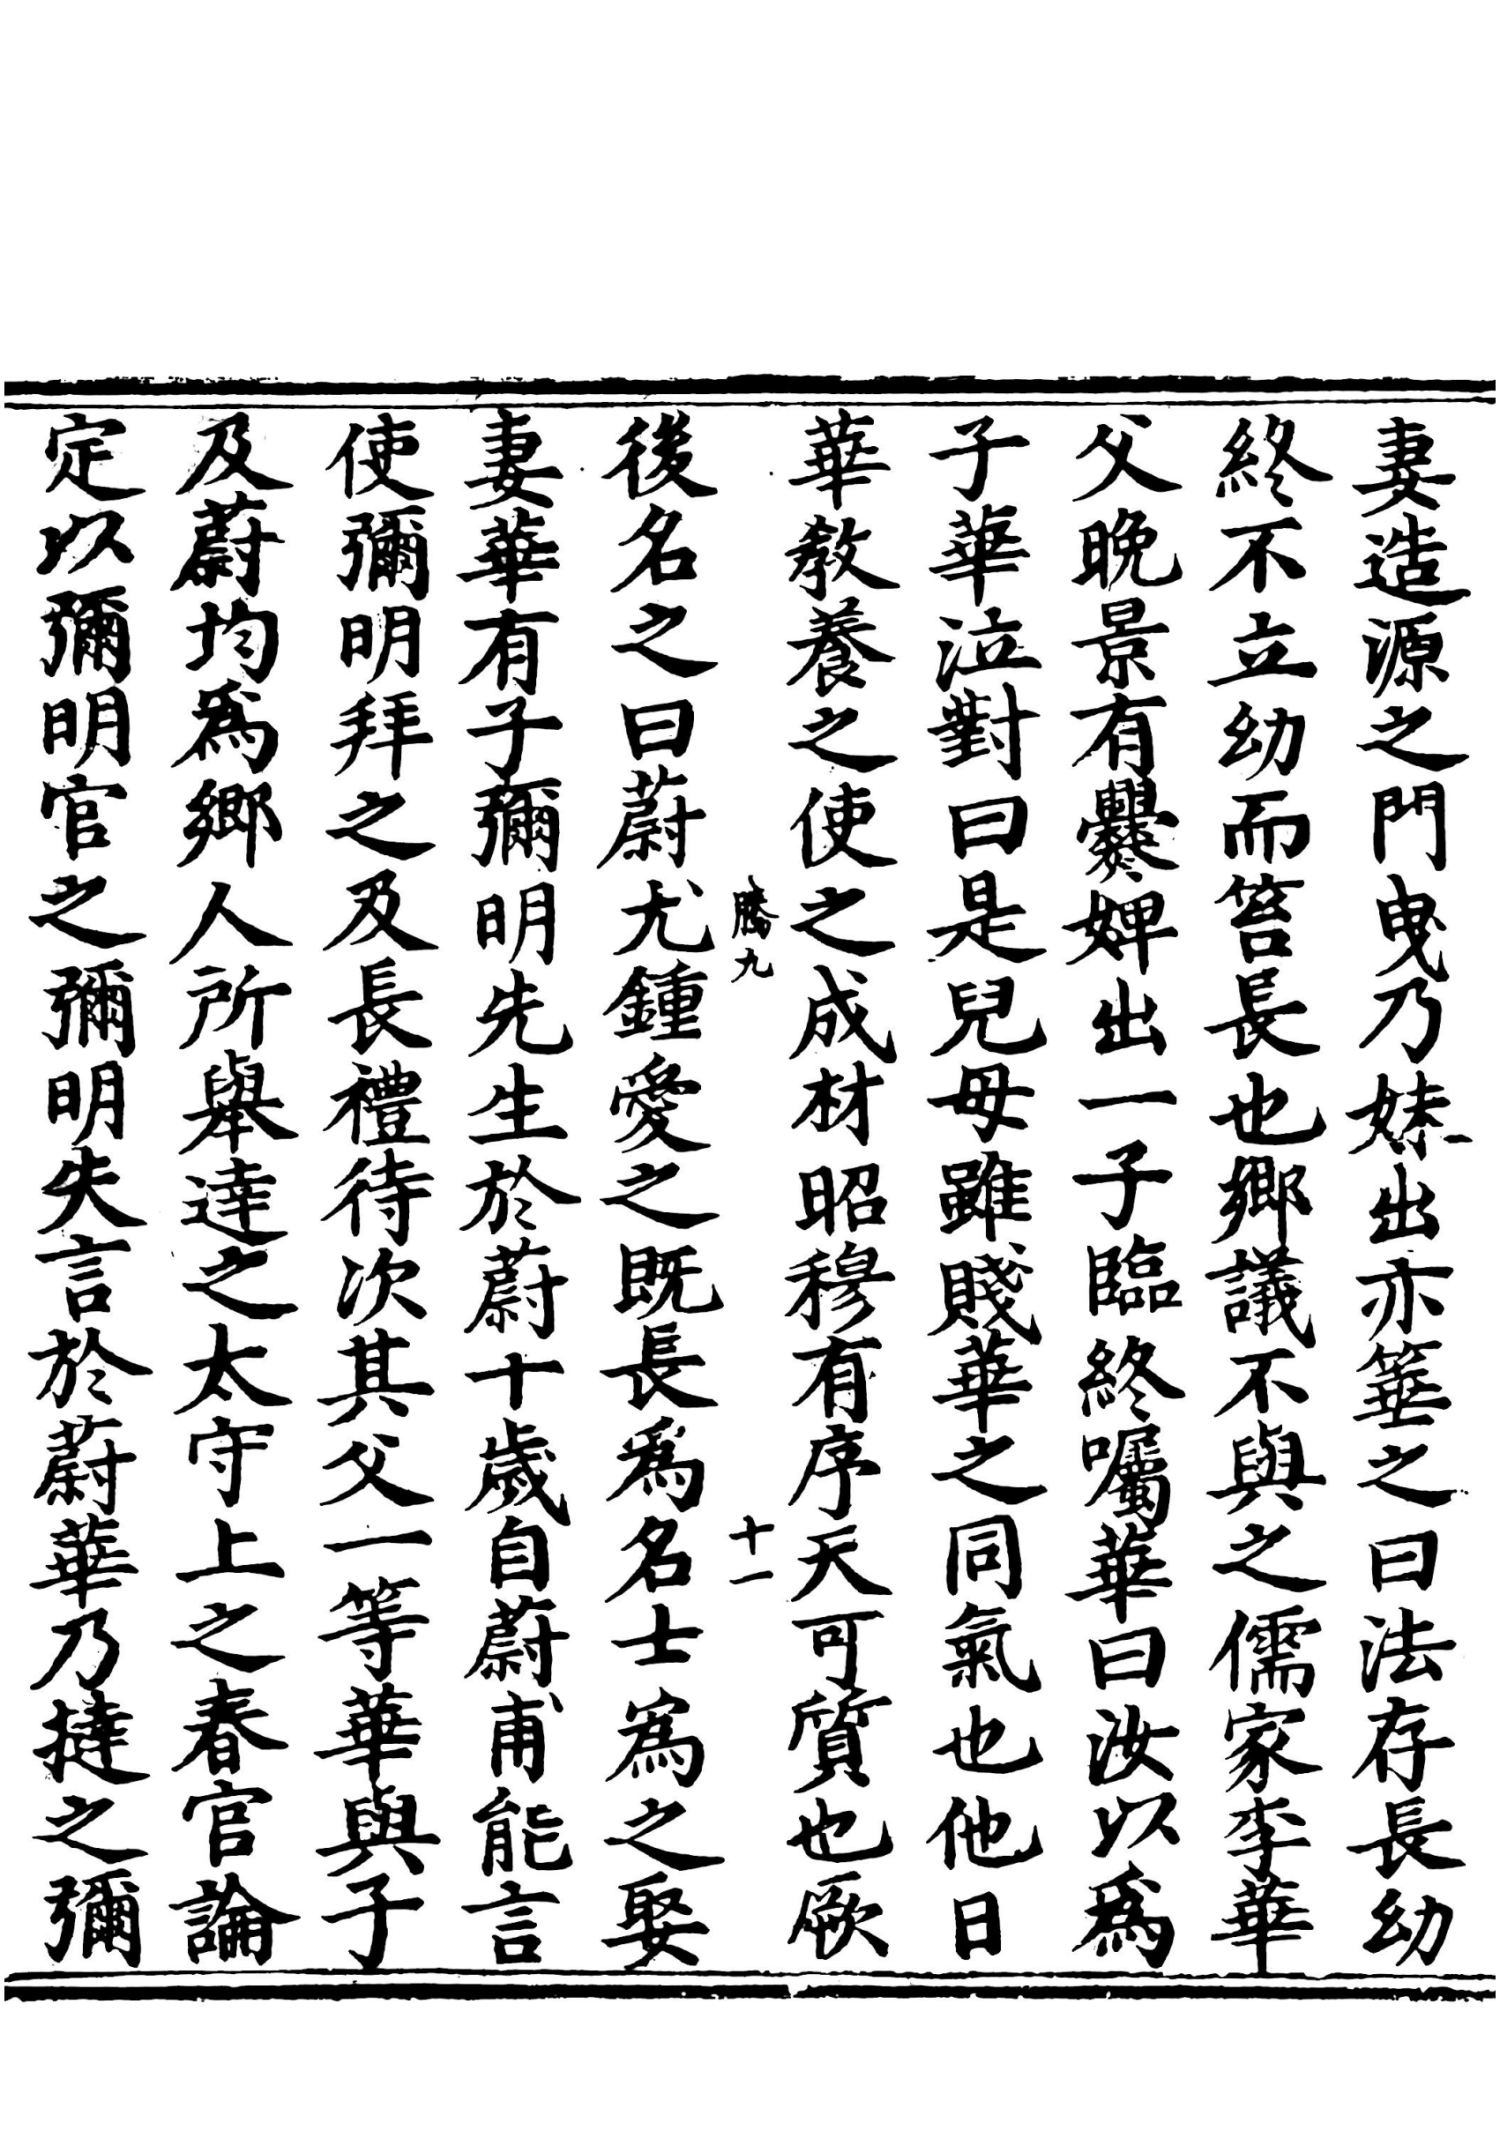 妻造源之門曳乃妹出亦箠之曰法存長幼
終不立幼而笞長也鄉議不與之儒家李華
父晚景有爨婢出一子臨終囑華曰汝以爲
子華泣對曰是兒母雖賤華之同氣也他日
華教養之使之成材昭穆有序天可質也厥
騰九
十一
後名之曰蔚尤鍾愛之既長爲名士爲之娶
妻華有子彌明先生於蔚十歲自蔚甫能言
使彌明拜之及長禮待次其父一等華與子
及蔚均爲鄉人所舉達之太守上之春官論
定以彌明官之彌明失言於蔚華乃撻之彌